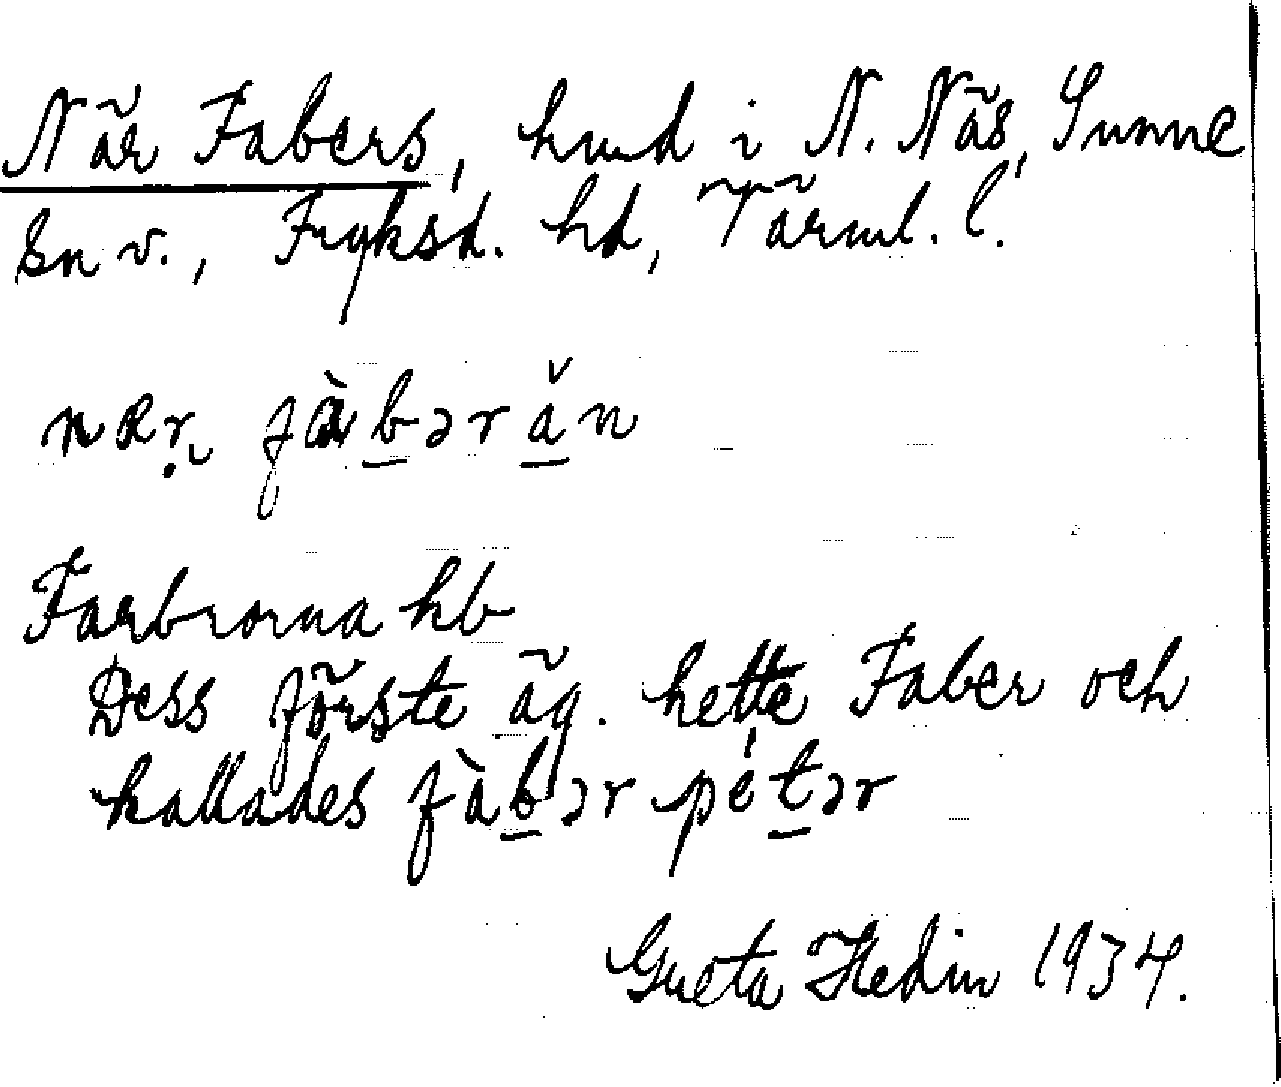 När Fabers, hmd i N. Näs, Sunne
sn v., Fryksd. hd, Värml. l.
nær fàbərǎn
Farbrorna hb
Dess förste äg. hette Faber och
kallades fàbər pétər
Greta Hedin 1934.